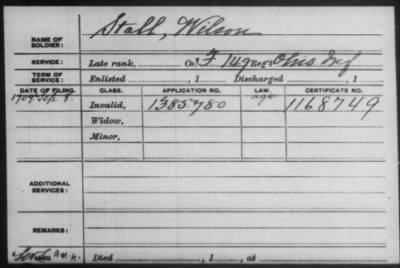 NAME OF SOLDIER: Stall, Wilson
SERVICE: Late rank, Co. F, 149 Reg't Ohio Inf
TERM OF SERVICE: Enlisted , 1 Discharged , 1
DATE OF FILING. CLASS. APPLICATION NO. LAW. CERTIFICATE NO.
1907 Sep. 8. Invalid, 1385780 age 1168749
Widow,
Minor,
ADDITIONAL SERVICES:
REMARKS:
Died , 1 , at